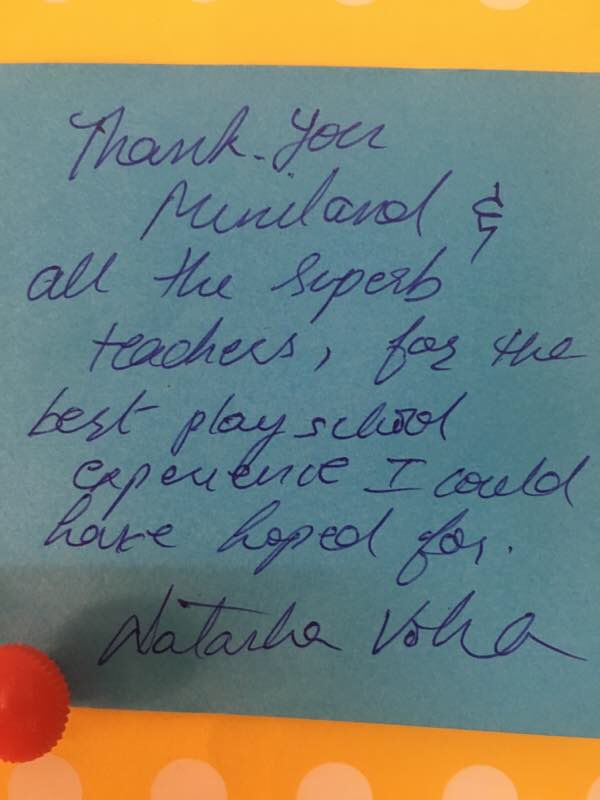 Thank you
Miniland &
all the superb
teachers, for the
best playschool
experience I could
have hoped for.
Natasha Vohra